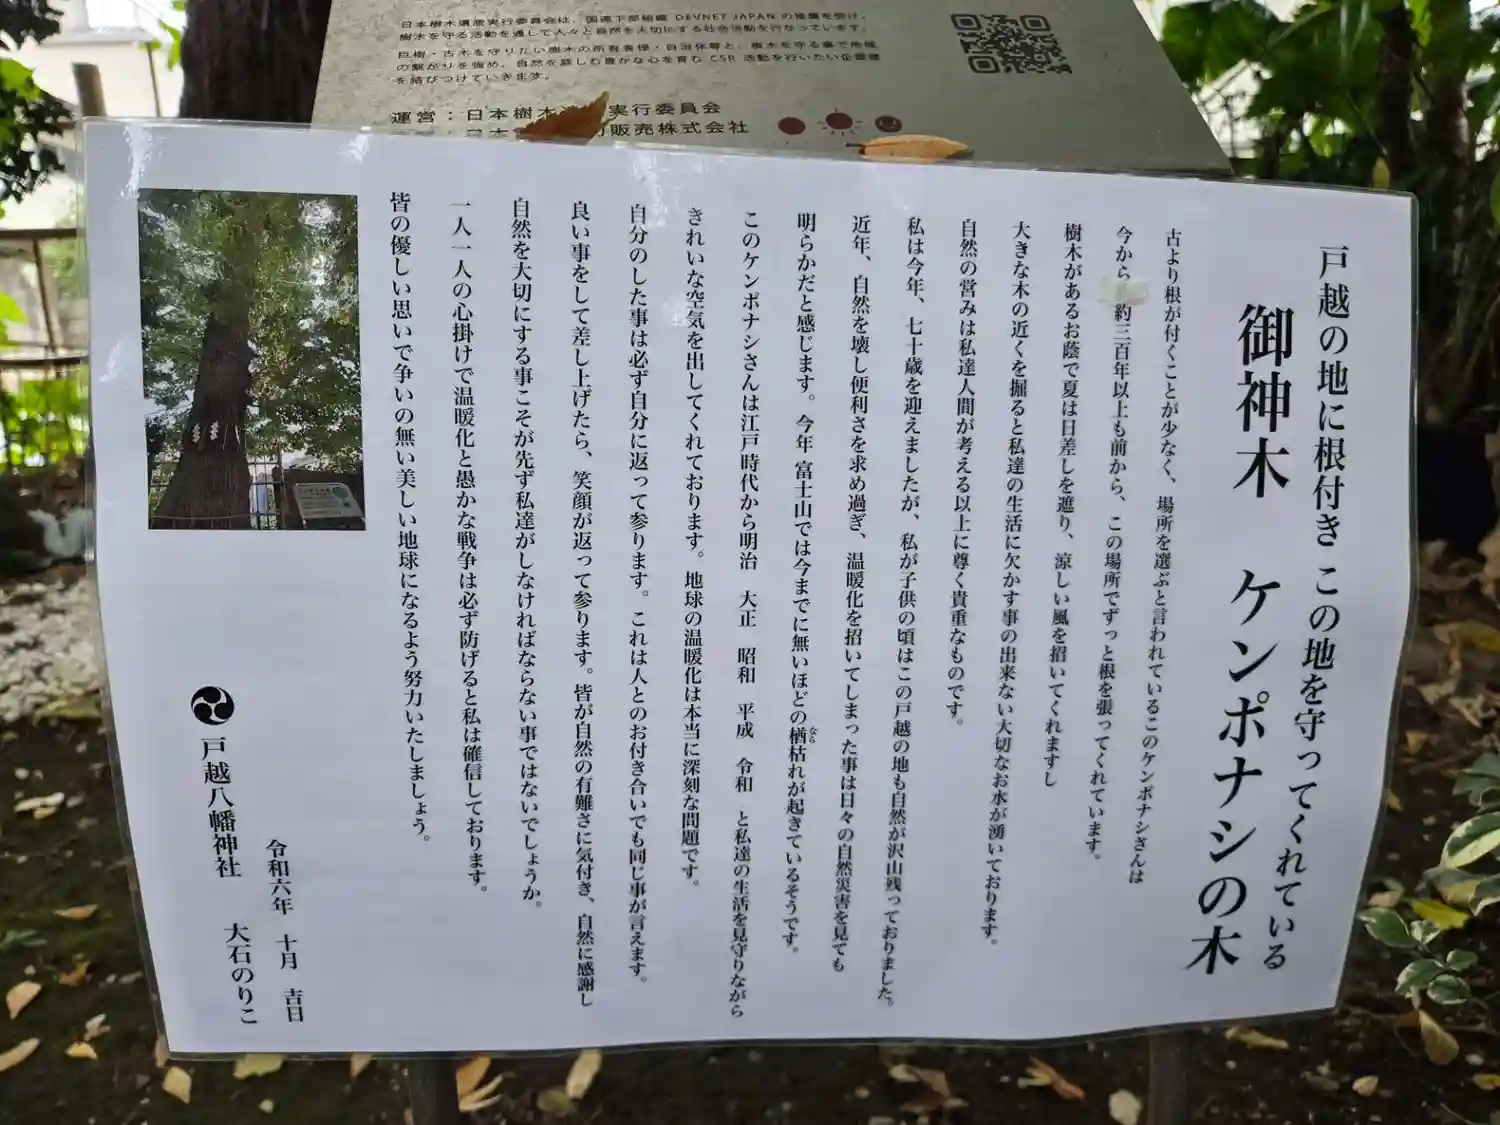 日本樹木遺産実行委員会は、国連下部組織 DEVNET JAPAN の推薦を受け、
樹木を守る活動を通して人々と自然を大切にする社会活動を行なっています。
巨樹・古木を守りたい樹木の所有者様・自治体等と、樹木を守る事で地域
の繋がりを強め、自然を慈しむ豊かな心を育む CSR 活動を行いたい企業様
を結びつけていきます。
運営：日本樹木 実行委員会
販売株式会社
戸越の地に根付き この地を守ってくれている
御神木 ケンポナシの木
古より根が付くことが少なく、場所を選ぶと言われているこのケンポナシさんは
今から 約三百年以上も前から、この場所でずっと根を張ってくれています。
樹木があるお蔭で夏は日差しを遮り、涼しい風を招いてくれますし
大きな木の近くを掘ると私達の生活に欠かす事の出来ない大切なお水が湧いております。
自然の営みは私達人間が考える以上に尊く貴重なものです。
私は今年、七十歳を迎えましたが、私が子供の頃はこの戸越の地も自然が沢山残っておりました。
近年、自然を壊し便利さを求め過ぎ、温暖化を招いてしまった事は日々の自然災害を見ても
明らかだと感じます。今年 富士山では今までに無いほどの楢枯れが起きているそうです。
なら
このケンポナシさんは江戸時代から明治 大正 昭和 平成 令和 と私達の生活を見守りながら
きれいな空気を出してくれております。地球の温暖化は本当に深刻な問題です。
自分のした事は必ず自分に返って参ります。これは人とのお付き合いでも同じ事が言えます。
良い事をして差し上げたら、笑顔が返って参ります。皆が自然の有難さに気付き、自然に感謝し
自然を大切にする事こそが先ず私達がしなければならない事ではないでしょうか。
一人一人の心掛けで温暖化と愚かな戦争は必ず防げると私は確信しております。
皆の優しい思いで争いの無い美しい地球になるよう努力いたしましょう。
令和六年 十月 吉日
戸越八幡神社 大石のりこ